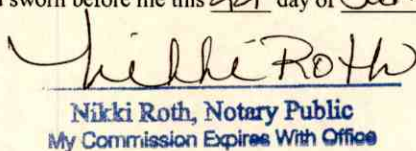 sworn before me this day of
Nikki Roth
Nikki Roth, Notary Public
My Commission Expires With Office